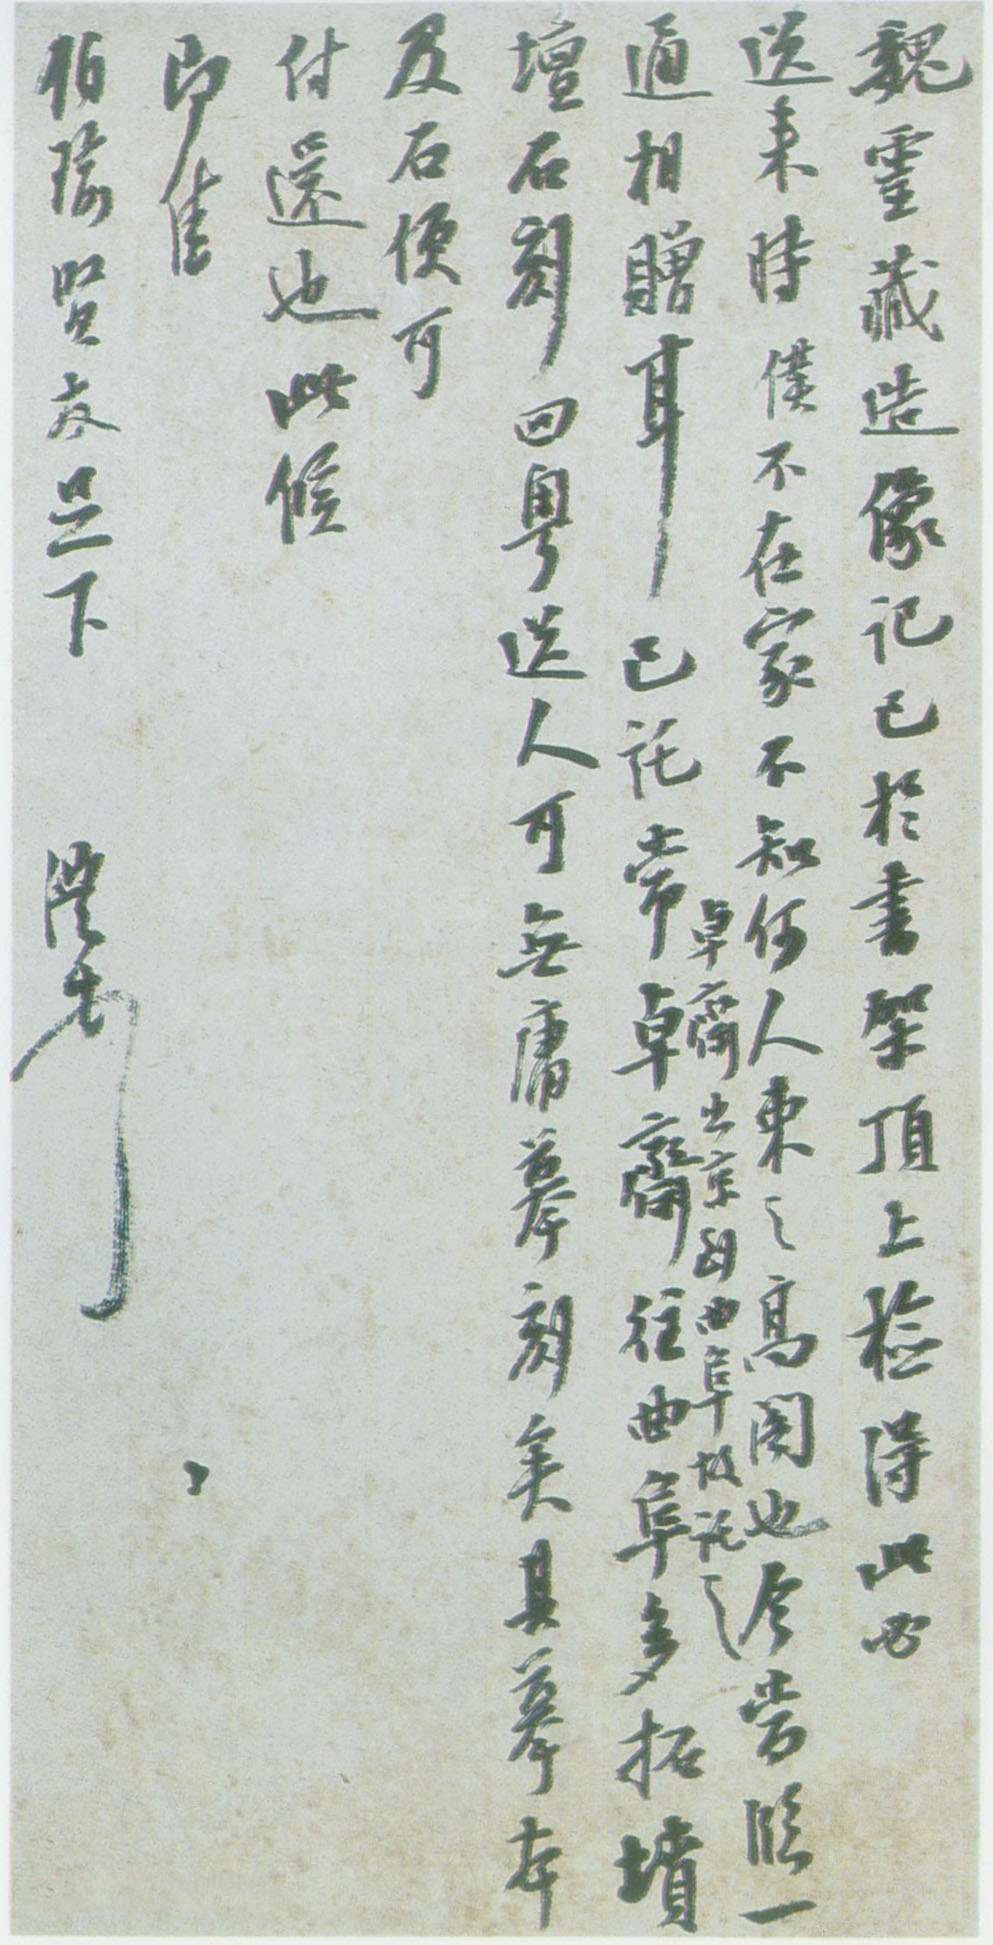 魏靈藏造像記已於書架頂上檢得此必
送來時僕不在家不知何人束之高閣也今當臨一
通相贈耳已託常卓齋往曲阜多拓墳
卓齋出京到曲阜故託之
壇石刻回粵送人可無庸摹刻矣其摹本
及石便可
付還也此候
即佳
伯瑜賢友足下
澧書